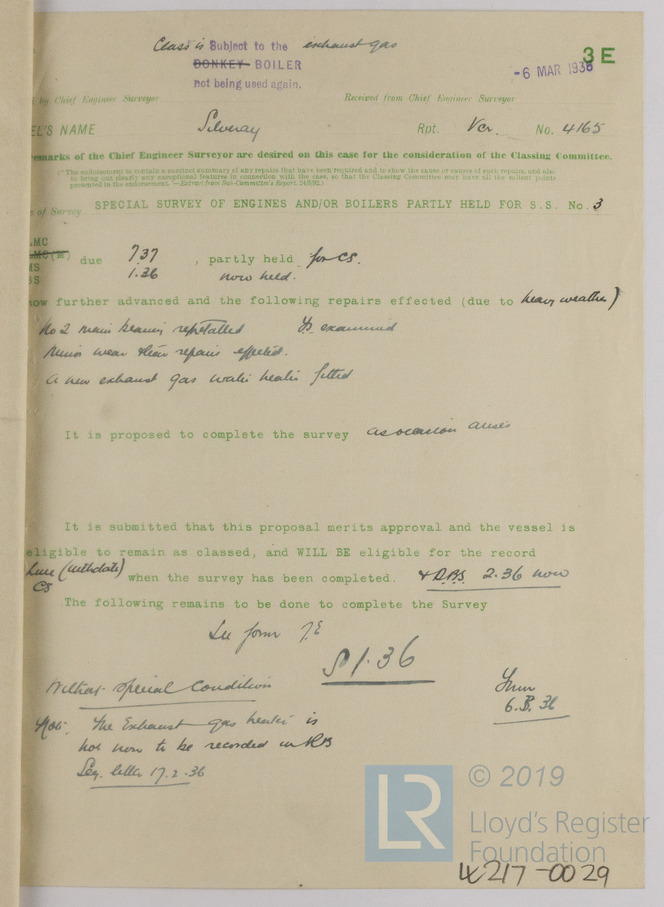 Class is Subject to the exhaust gas
3E
DONKEY BOILER
-6 MAR 1936
not being used again.
by Chief Engineer Surveyor
Received from Chief Engineer Surveyor
EL'S NAME Silveray Rpt. Ver. No. 4165
remarks of the Chief Engineer Surveyor are desired on this case for the consideration of the Classing Committee.
(The endorsement to contain a succinct summary of any repairs that have been required and to show the cause or causes of such repairs, and also
to bring out clearly any exceptional features in connection with the case, so that the Classing Committee may have all the salient points
presented in the endorsement."—Extract from Sub-Committee's Report,
s of Survey SPECIAL SURVEY OF ENGINES AND/OR BOILERS PARTLY HELD FOR S.S. No. 3
LMC
LMC(M) due 7.37 , partly held for CS.
MS
BS 1.36 now held.
now further advanced and the following repairs effected (due to heavy weather)
No 2 main bearing remetalled examined
Minor wear & tear repairs effected.
A new exhaust gas water heater fitted
It is proposed to complete the survey as occasion arises
It is submitted that this proposal merits approval and the vessel is
eligible to remain as classed, and WILL BE eligible for the record
(with date)
CS when the survey has been completed. + DBS 2.36 now
The following remains to be done to complete the Survey
See form 7E
1.36
Without Special Condition
6.3.36
Note. The Exhaust gas heater is
not now to be recorded in RB
Sec. letter 17.2.36
LR
© 2019
Lloyd's Register
Foundation
W217-0029